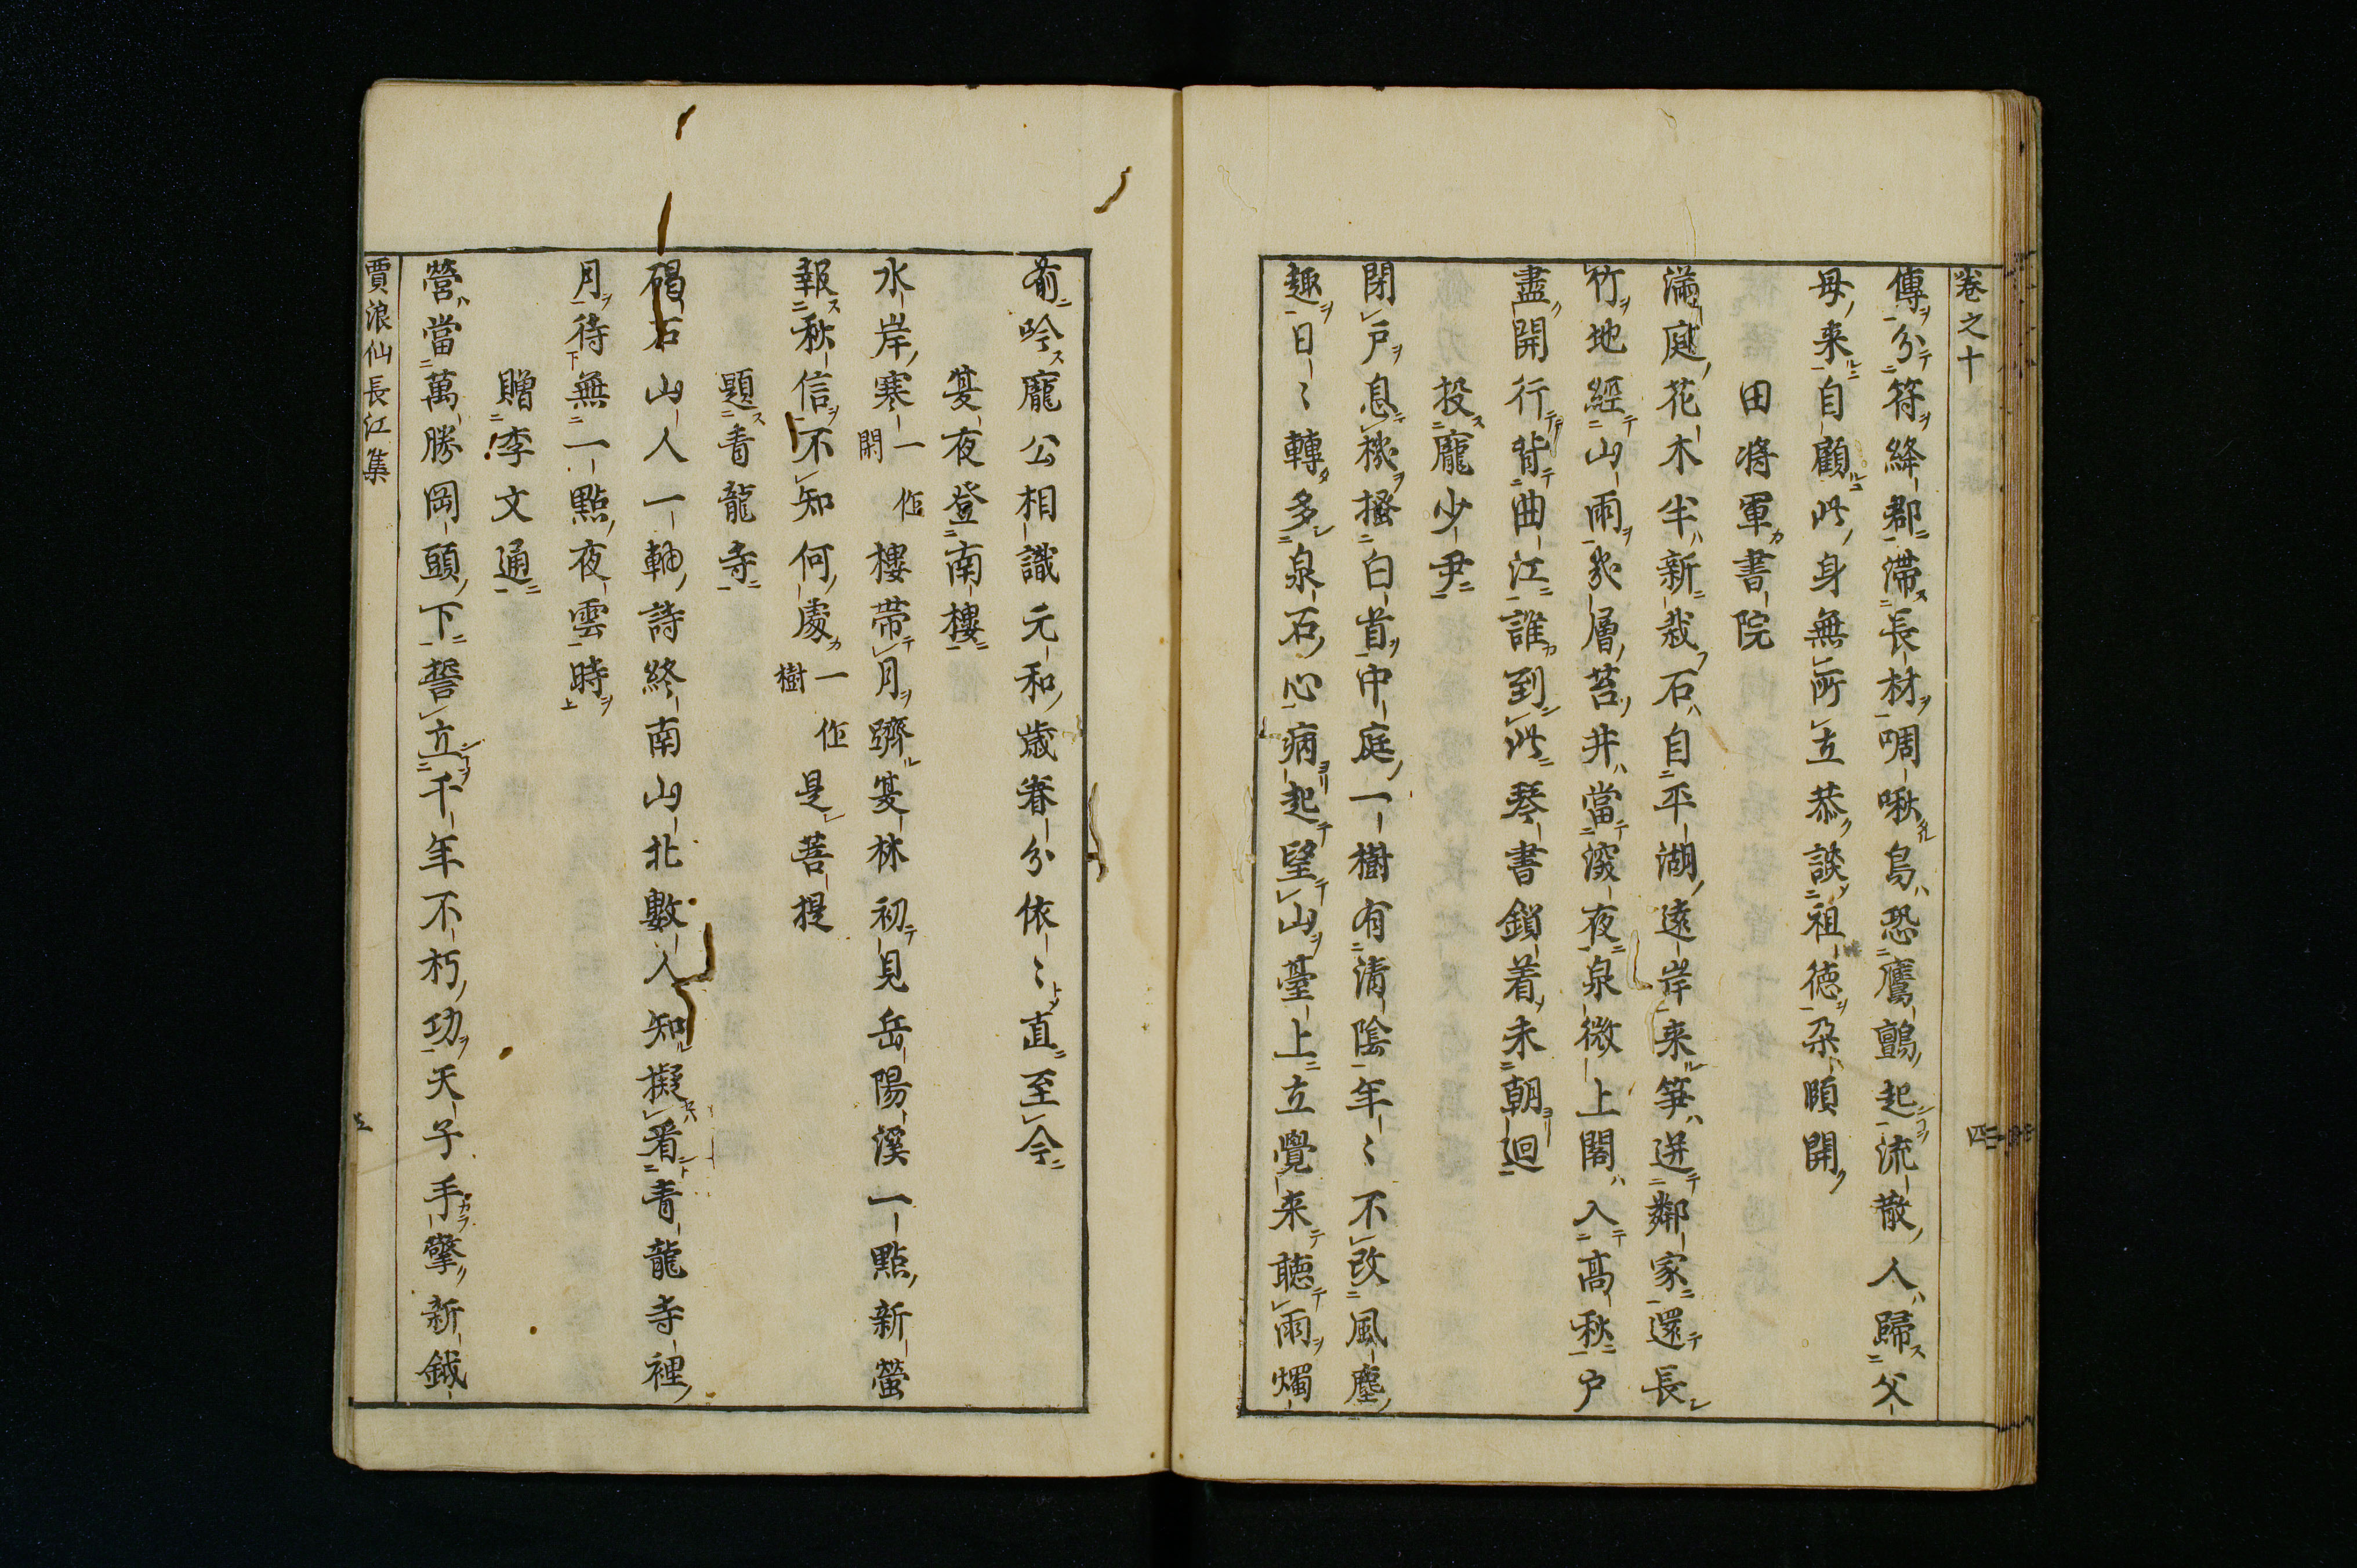 卷之十 四
傳分符絳郡滯長材啁啾鳥恐鷹鸇起流散人歸父
母来自顧此身無所立恭談祖徳朶頤開
田將軍書院
滿庭花木半新栽石自平湖遠岸来笋迸鄰家還長
竹地經山雨幾層苔井當深夜泉微上閣入高秋戸
盡開行背曲江誰到此琴書鎖着未朝迴
投龐少尹
閉戸息機搔白首中庭一樹有清陰年〻不改風塵
趣日〻轉多泉石心病起望山臺上立覺来聴雨燭
前吟龐公相識元和歳眷分依〻直至今
夏夜登南樓
水岸寒一作閑樓帯月躋夏林初見岳陽溪一點新螢
報秋信不知何處一作樹是菩提
題青龍寺
碣石山人一軸詩終南山北數人知擬看青龍寺裡
月待無一點夜雲時
贈李文通
營當萬勝岡頭下誓立千年不朽功天子手擎新鉞
賈浪仙長江集